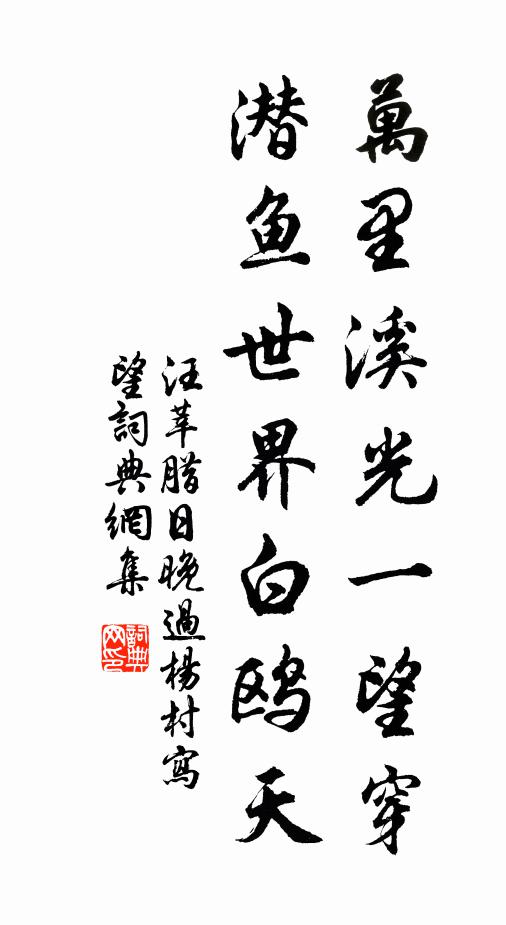 萬里溪光一望穿
潜鱼世界白鸥天
汪莘腊日晚過楊村寫
望詞典網集
詞典网印